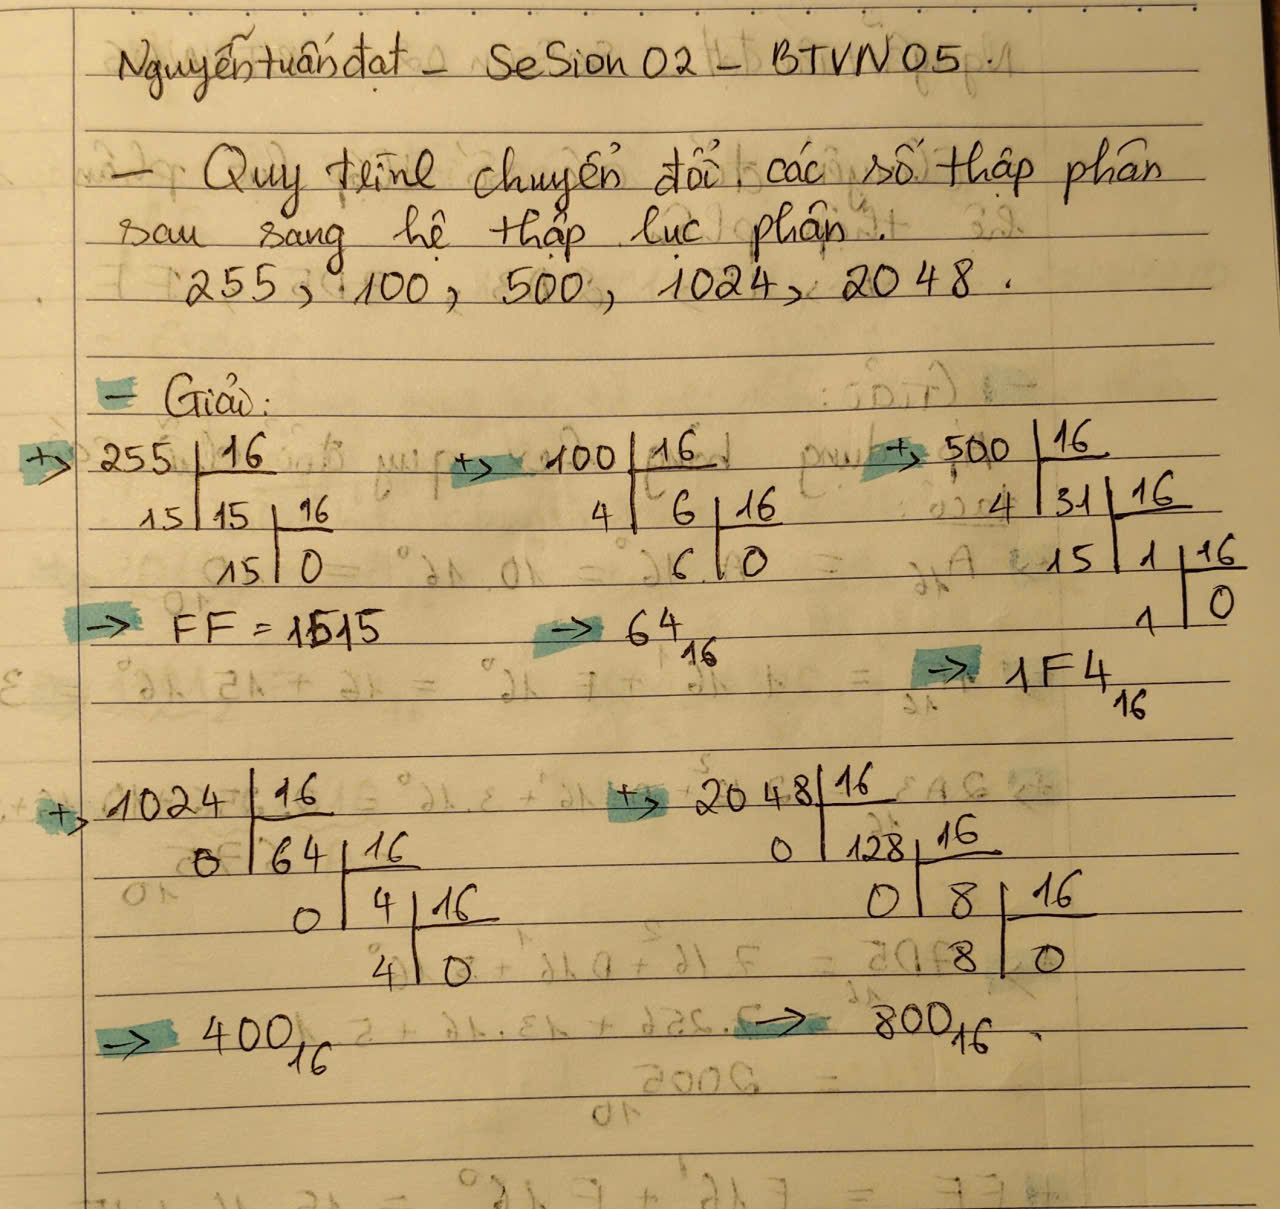 Nguyễn tuấn đạt - SeSion 02 - BTVN 05.
- Quy trình chuyển đổi các số thập phân
sau sang hệ thập lục phân.
255, 100, 500, 1024, 2048.
- Giải:
+> 255 | 16
15 | 15 | 16
15 | 0
-> FF = 1515
+> 100 | 16
4 | 6 | 16
6 | 0
-> 64₁₆
+> 500 | 16
4 | 31 | 16
15 | 1 | 16
1 | 0
-> 1F4₁₆
+> 1024 | 16
0 | 64 | 16
0 | 4 | 16
4 | 0
-> 400₁₆
+> 2048 | 16
0 | 128 | 16
0 | 8 | 16
8 | 0
-> 800₁₆.